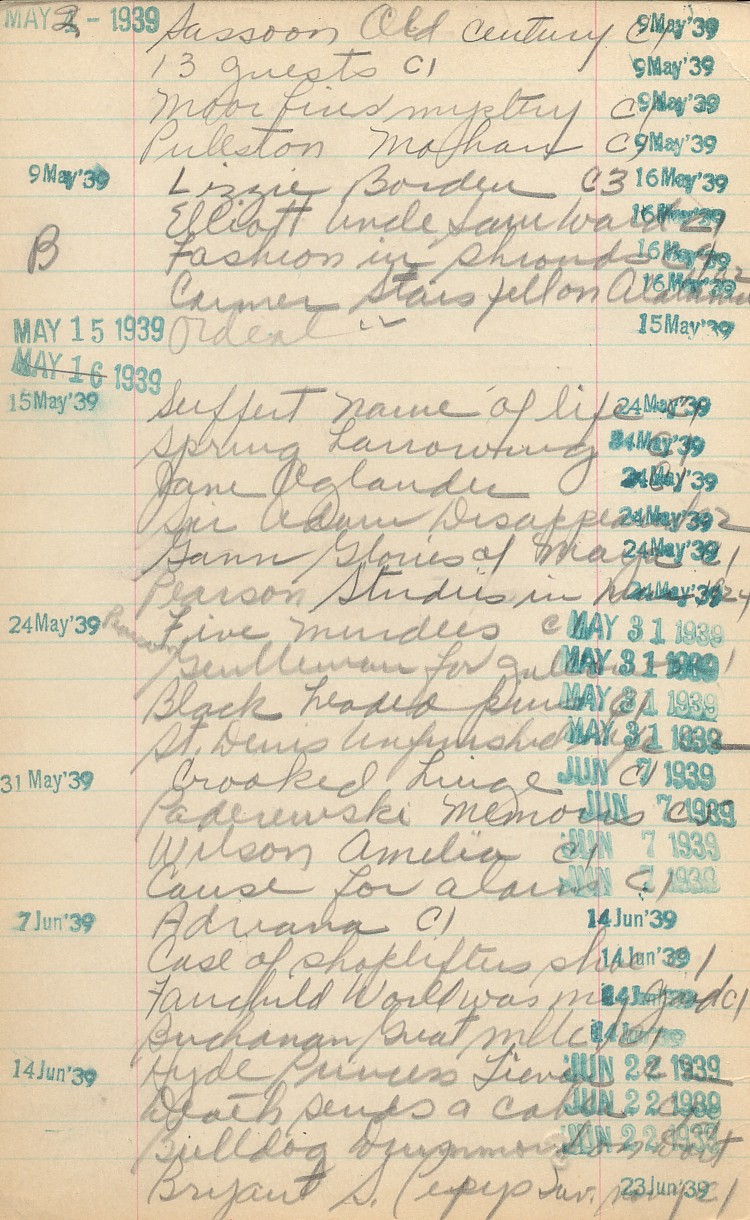 MAY 2 - 1939 Sassoon Old century C1 9May'39
13 guests C1 9May'39
Moorfires mystery C1 9May'39
Puleston Mahan C1 9May'39
9May'39 Lizzie Borden C3 16May'39
Elliott Uncle Sam Ward C1 16May'39
B Fashion in Shrouds 16May'39
Carmer Stars fell on Alabama 16May'39
MAY 15 1939 Ordeal " 15May'39
MAY 16 1939
15May'39 Seiffert name of life C1 24May'39
Spring harrowing C1 24May'39
Jane Oglander 24May'39
Sir Adam Disappeared 24May'39
Gann Glories of Maya C1 24May'39
Pearson Studies in 24May'39
24May'39 Pearson Five murders C MAY 31 1939
Gentleman for MAY 31 1939
Black headed pins C1 MAY 31 1939
St. Denis Unfinished life MAY 31 1939
31May'39 Crooked hinge C1 JUN 7 1939
Paderewski Memoirs JUN 7 1939
Wilson Amelia C1 JUN 7 1939
Cause for alarm C1 JUN 7 1939
7Jun'39 Adriana C1 14Jun'39
Case of shoplifters shoe 1 14Jun'39
Fairchild World was my Gard C1 14Jun'39
Buchanan Great C1 14Jun'39
14Jun'39 Hyde Princess Lieven JUN 22 1939
Death sends a cable C1 JUN 22 1939
Bulldog Drummond on JUN 22 1939
Bryant S. Pepys Sav. navy C1 23Jun'39